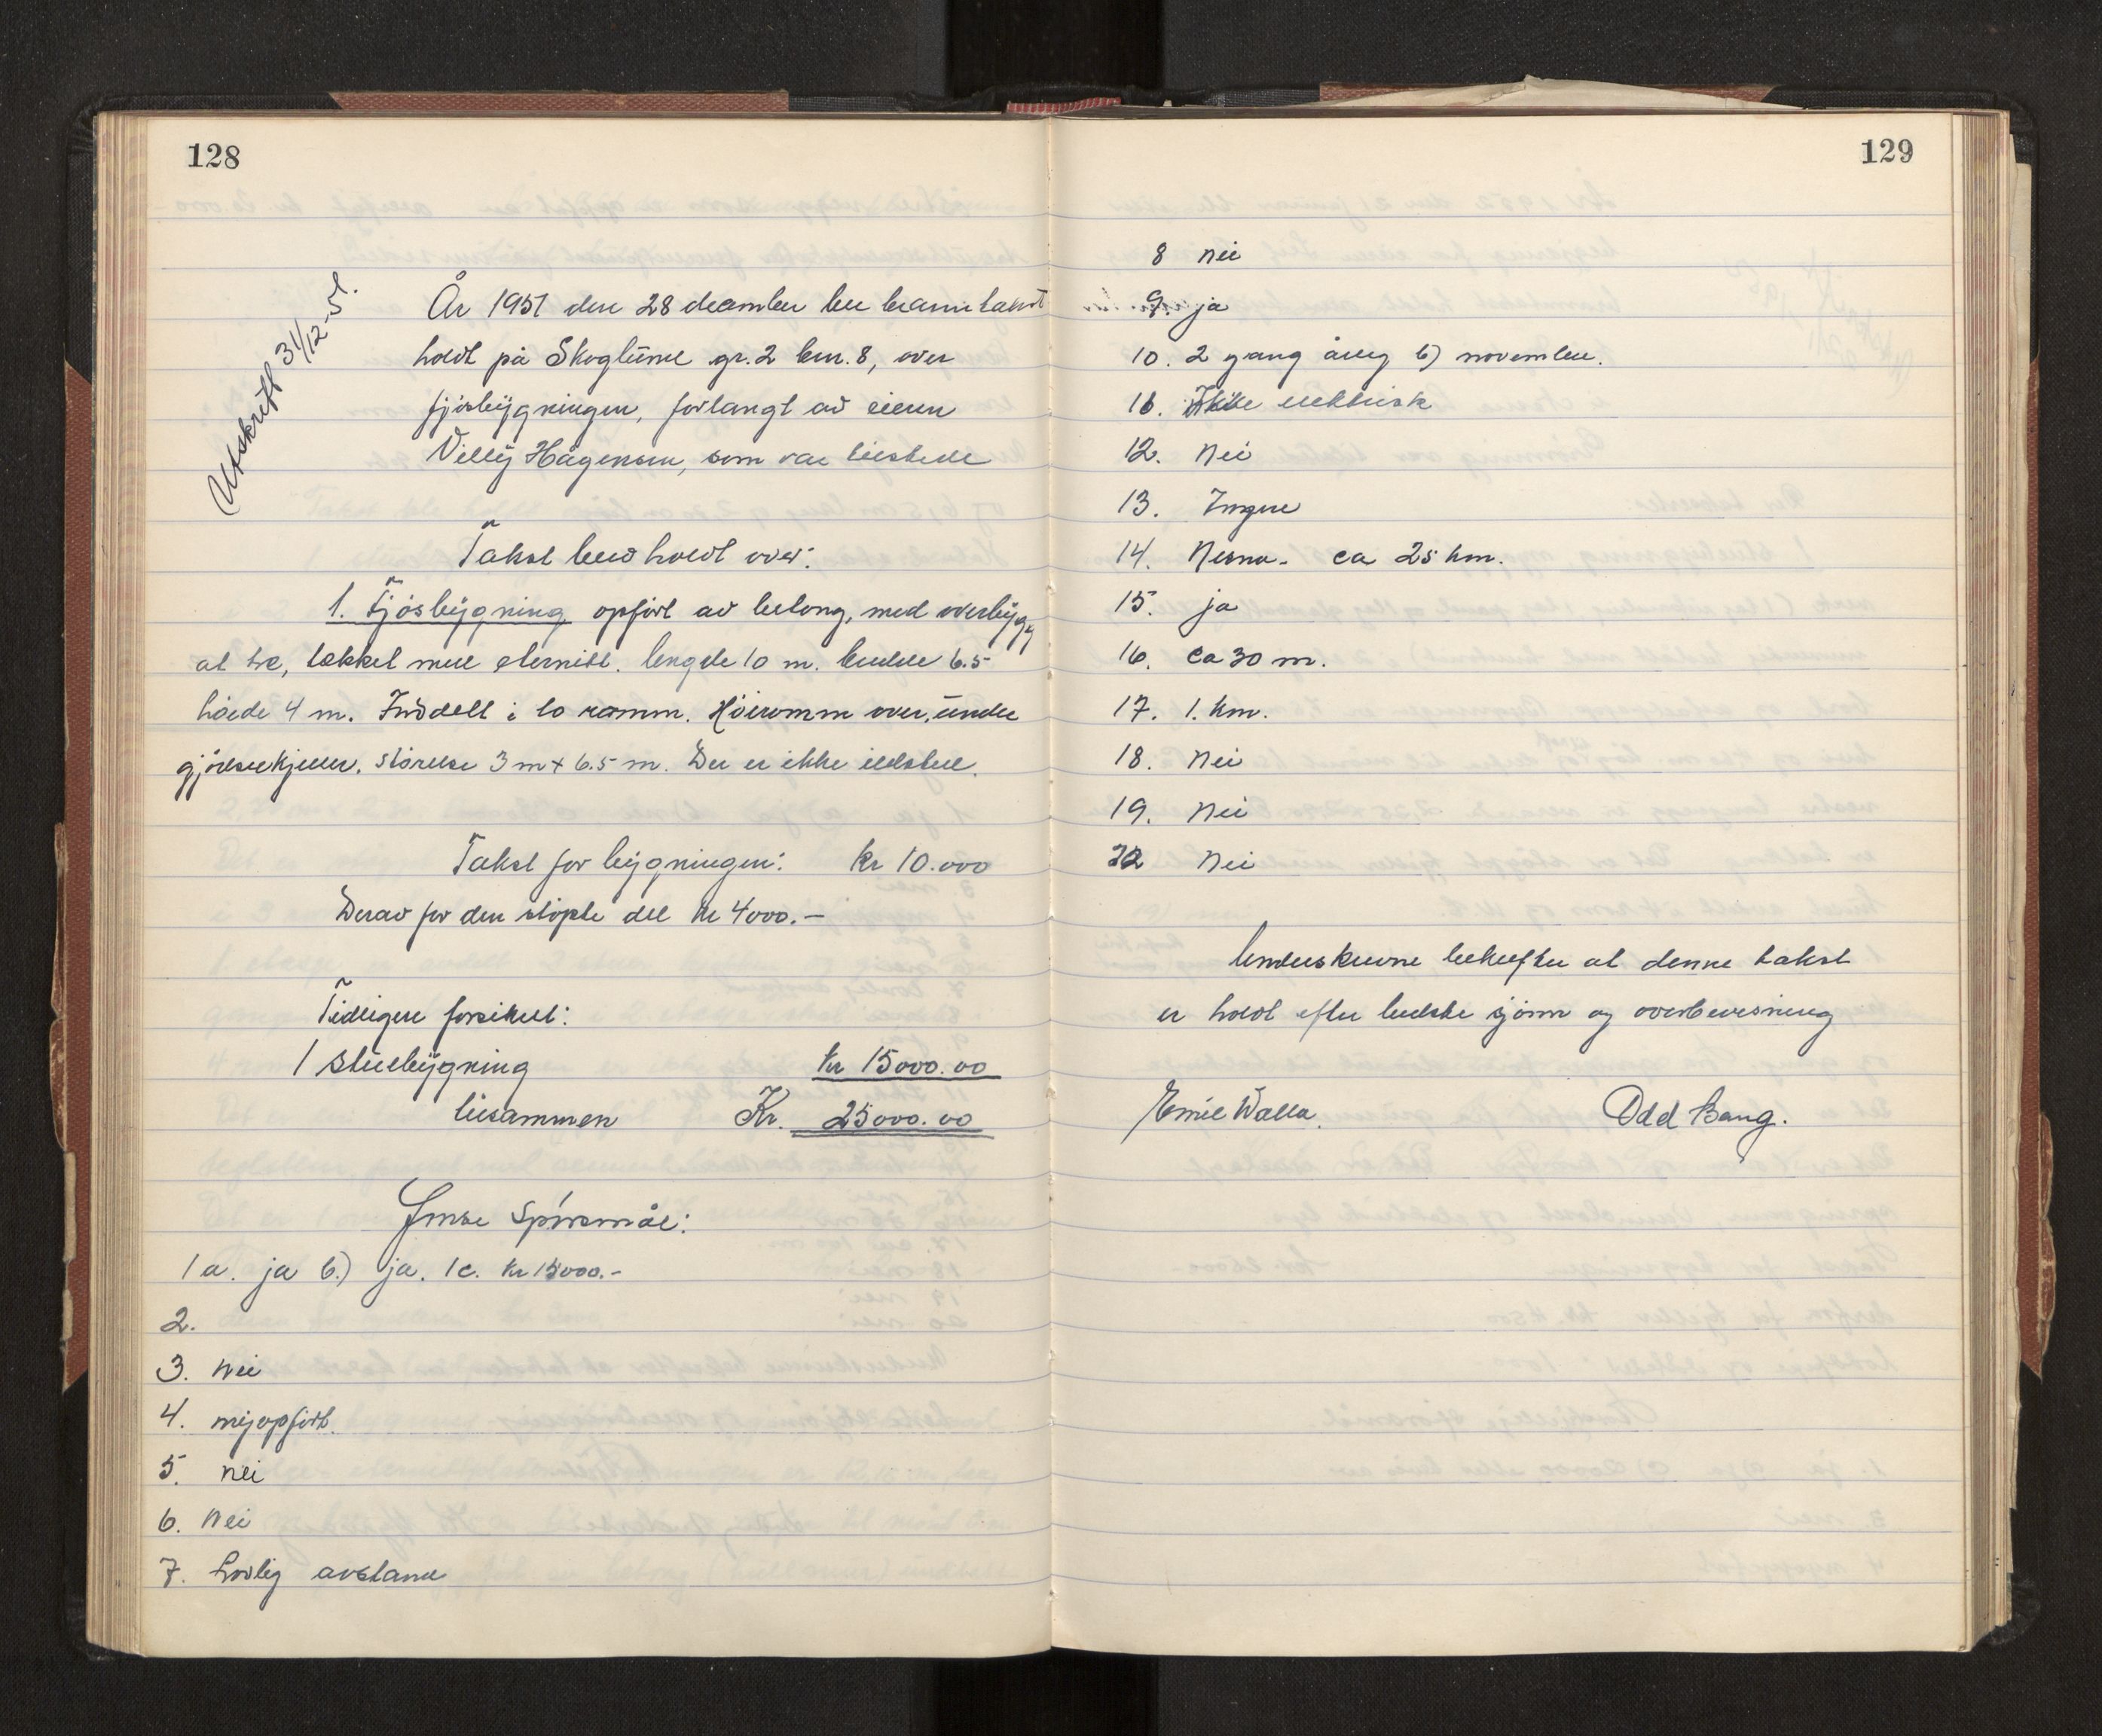 128
Utskrift 31/12-51.
År 1951 den 28 desember ble branntakst
holdt på Skoglund gr. 2 bnr. 8, over
fjøsbygningen, forlangt av eieren
Villy Hågensen, som var tilstede
Takst blev holdt over:
1. Fjøsbygning opført av betong, med overbygg
at tre, tekket med eternitt. lengde 10 m. bredde 6.5
høide 4 m. Inddelt i to romm. Høiromm over, under
gjødselkjeller. størelse 3 m + 6.5 m. Der er ikke ildsted.
Takst for bygningen: kr 10.000
Derav for den støpte del kr 4000.-
Tidligere forsikret:
1 stuebygning kr 15000.00
tilsammen Kr. 25000.00
Innse Spørsmål:
1 a. ja b.) ja. 1c. kr 15000.-
2.
3. nei
4. nyopført.
5. nei
6. Nei
7. lovlig avstand
129
8 nei
9. ja
10. 2 gang årlig b) november.
11. Ikke elektrisk
12. Nei
13. Ingen
14. Nesna. ca 25 km.
15. ja
16. Ca 30 m.
17. 1. km.
18. Nei
19. Nei
22 Nei
Underskrevne bekrefter at denne takst
er holdt efter bedste sjønn og overbevisning
Emil Walla. Odd Bang.